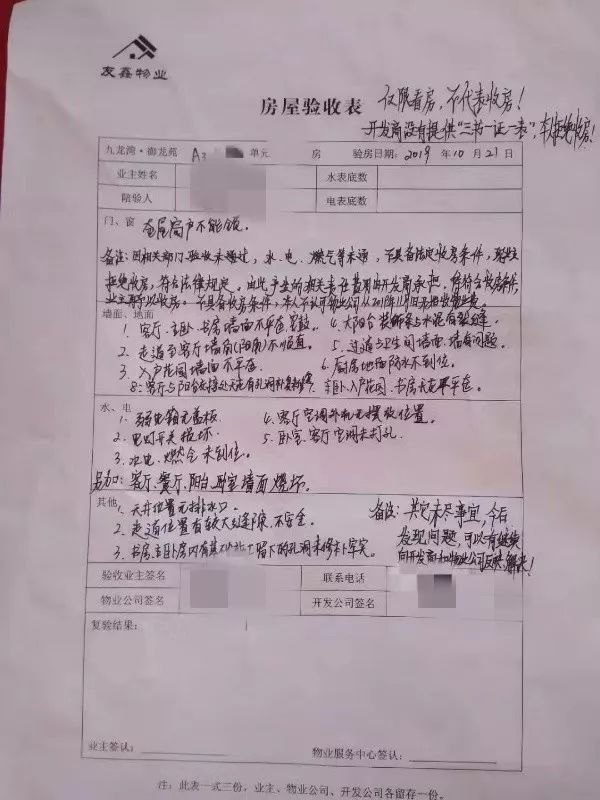 友鑫物业
房屋验收表
仅限看房，不代表收房！
开发商没有提供“三书一证一表”，本人拒绝收房！
九龙湾·御龙苑 A3 单元 房 验房日期：2019 年 10 月 21 日
业主姓名 水表底数
陪验人 电表底数
门、窗
窗户不能锁。
备注：因相关部门验收未通过，水、电、燃气等未通，不具备法定收房条件，
拒绝收房，符合法律规定。由此产生的相关责任及费用由开发商承担，
业主再予以收房。不具备收房条件，本人不认可物业公司从2019年11月1日
墙面、地面
1. 客厅、主卧、书房墙面不平整、空鼓
2. 走道至客厅墙角(阳角)不顺直。
3. 入户花园墙面不平整
4. 大阳台装饰条与水泥有裂缝
5. 过道与卫生间墙面、墙有问题。
6. 厨房地面防水不到位。
8. 客厅与阳台 天花有孔洞 主卧、入户花园、书房天花不平整。
水、电
1. 弱电箱无盖板
2. 电灯开关损坏
3. 水电、燃气未到位。
4. 客厅空调外机无摆放位置。
5. 卧室、客厅空调未打孔
另加：客厅、餐厅、阳台、卧室墙面 坏
其他
1. 天井位置无排水口。
2. 走道位置有较大缝隙，不安全。
3. 书房、主卧房内有基础施工留下的孔洞未修补密实
备注：其它未尽事宜，今后
发现问题，可以有继续
向开发商和物业公司反映解决！
验收业主签名 联系电话
物业公司签名 开发公司签名
复验结果：
业主签认： 物业服务中心签认：
注：此表一式三份，业主、物业公司、开发公司各留存一份。